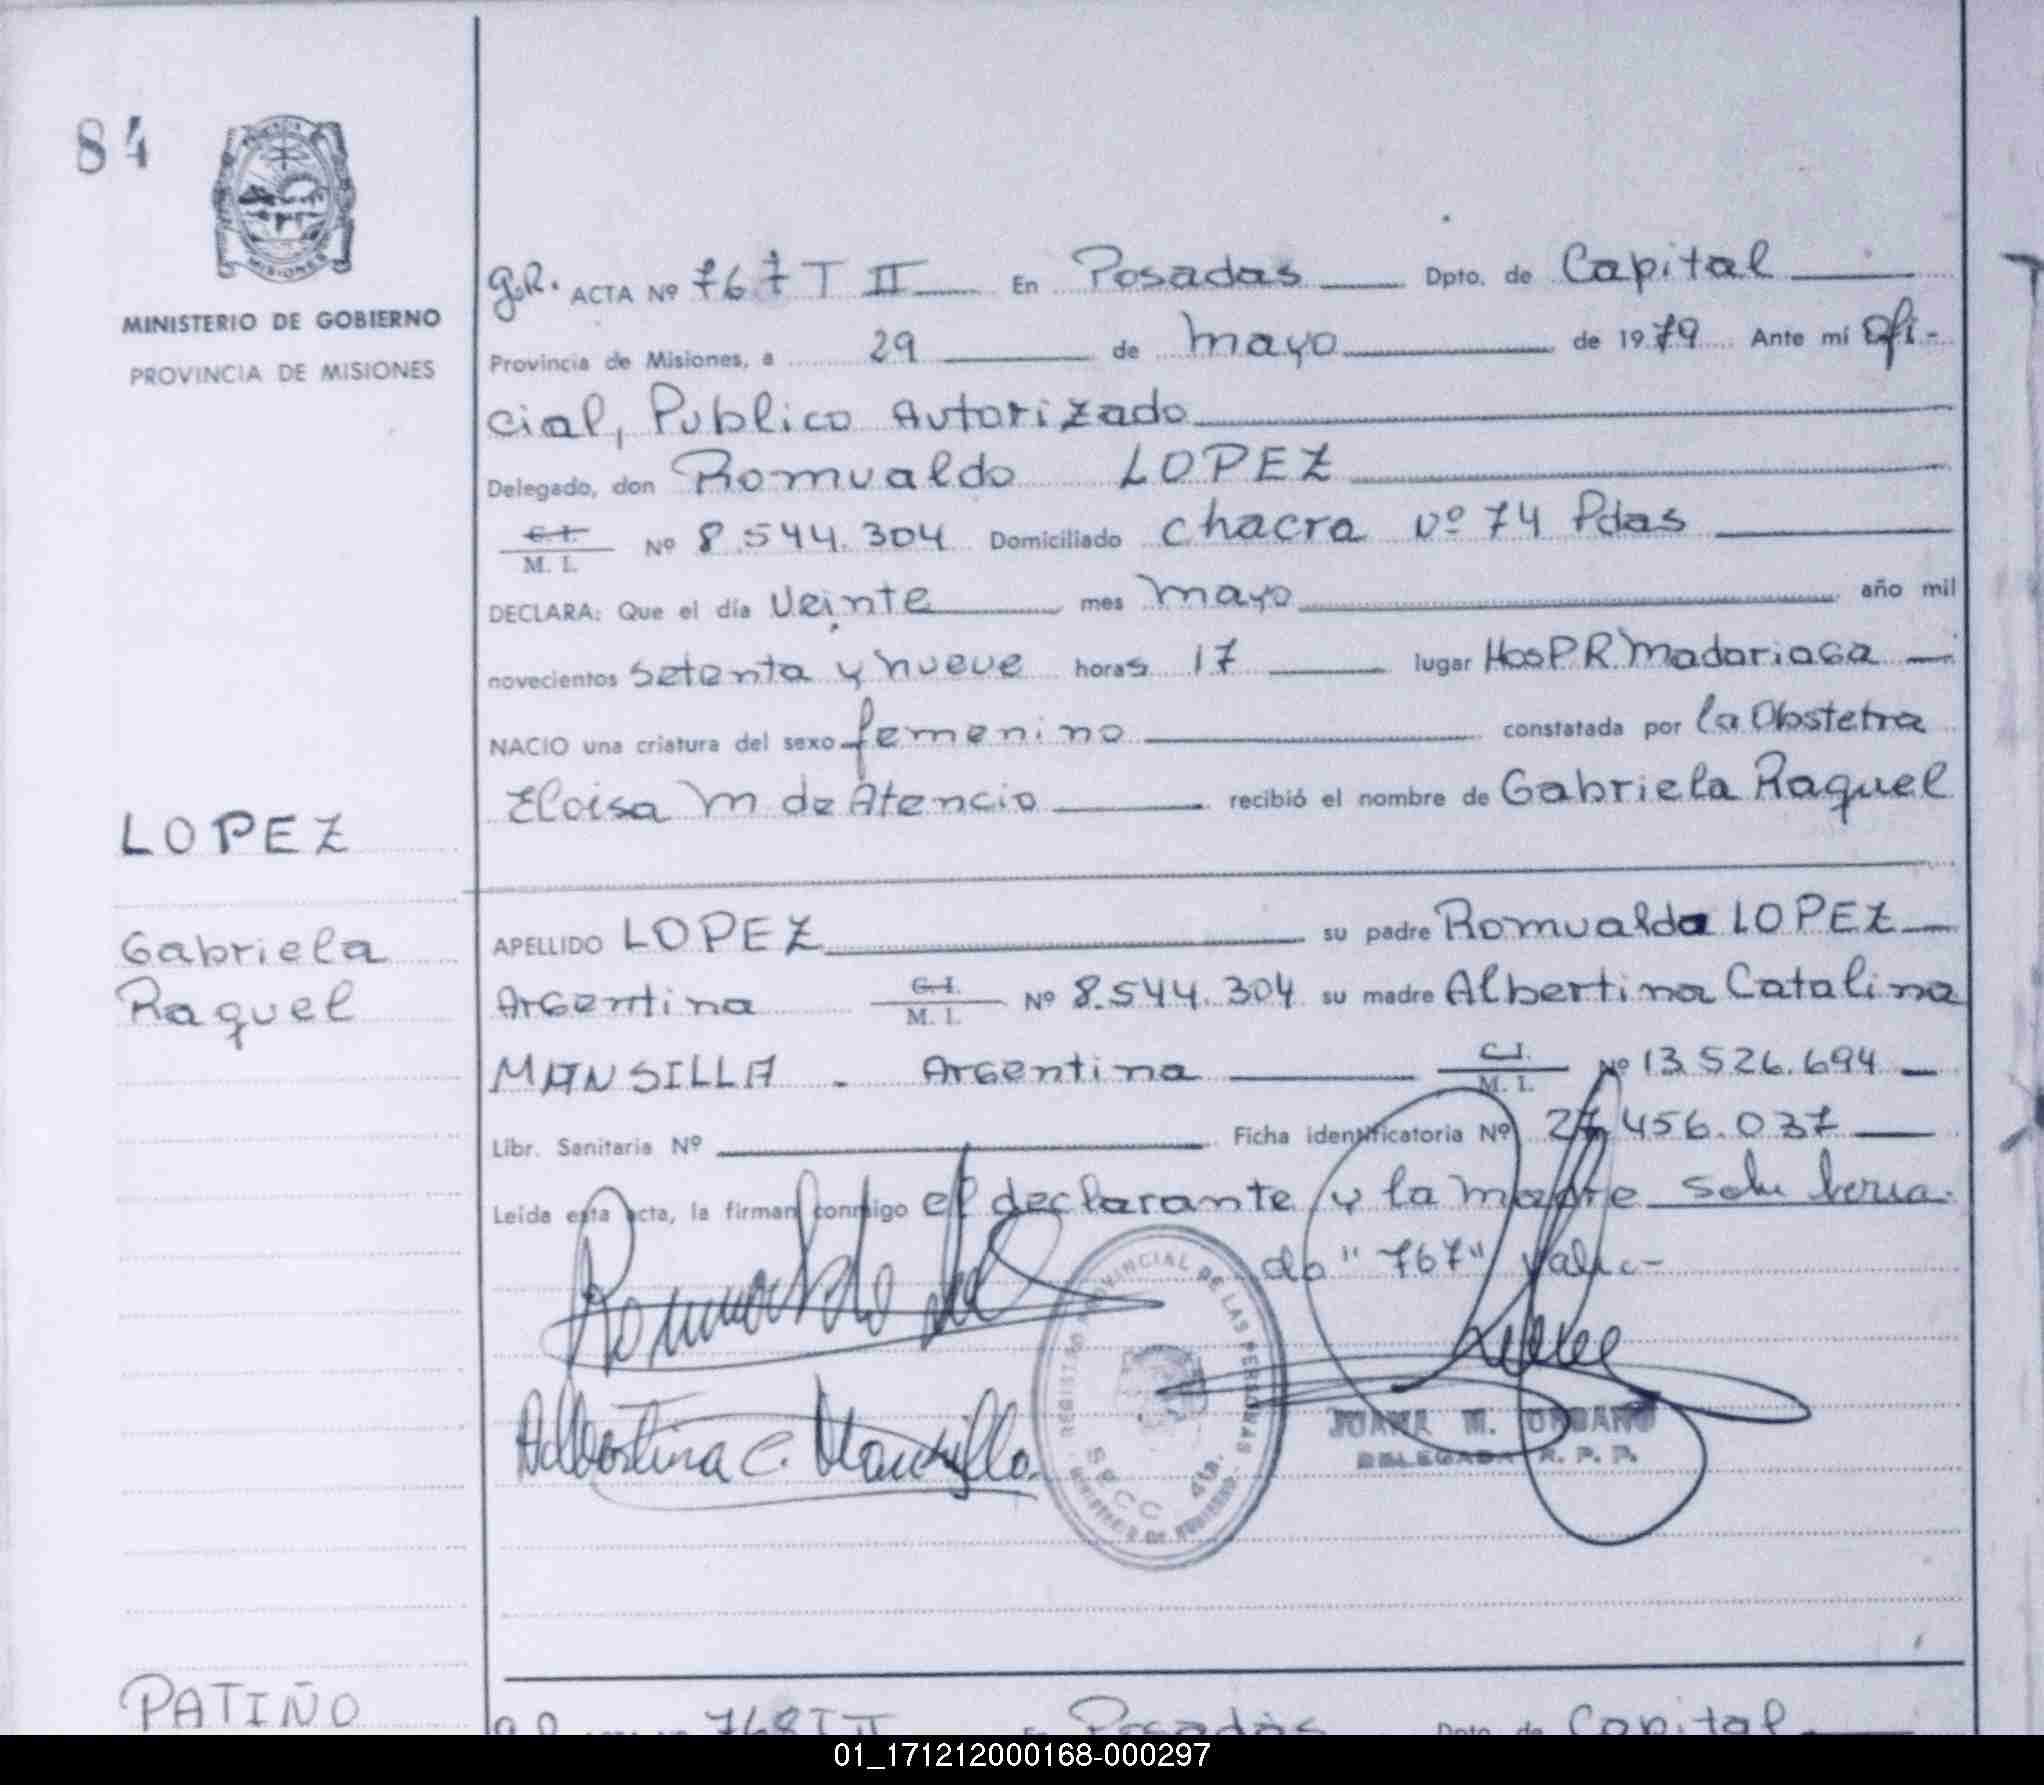 84
MISIONES
MINISTERIO DE GOBIERNO
PROVINCIA DE MISIONES
g.R. ACTA Nº 767 T II En Posadas Dpto. de Capital
Provincia de Misiones, a 29 de mayo de 1979 Ante mí Ofi-
cial, Publico Autorizado
Delegado, don Romualdo LOPEZ
C. I.
M. I. Nº 8.544.304 Domiciliado chacra nº 74 Pdas
DECLARA: Que el día Veinte mes mayo año mil
novecientos setenta y nueve horas 17 lugar HosP.R.Madariaga
NACIO una criatura del sexo femenino constatada por la Obstetra
Eloisa M de Atencio recibió el nombre de Gabriela Raquel
LOPEZ
Gabriela
Raquel
APELLIDO LOPEZ su padre Romualdo LOPEZ
Argentina C. I.
M. I. Nº 8.544.304 su madre Albertina Catalina
MANSILLA - Argentina C. I.
M. I. Nº 13.526.694
Libr. Sanitaria Nº Ficha identificatoria Nº 27.456.037
Leída esta acta, la firman conmigo el declarante y la madre
do "767" Vale.-
Romualdo
Albertina C. Mansilla
REGISTRO PROVINCIAL DE LAS PERSONAS
SECC. 4ta.
MINISTERIO DE GOBIERNO
JUANA M. URBANO
DELEGADA R. P. P.
PATIÑO
g.R. 768 T II En Posadas Dpto. de Capital
01_171212000168-000297